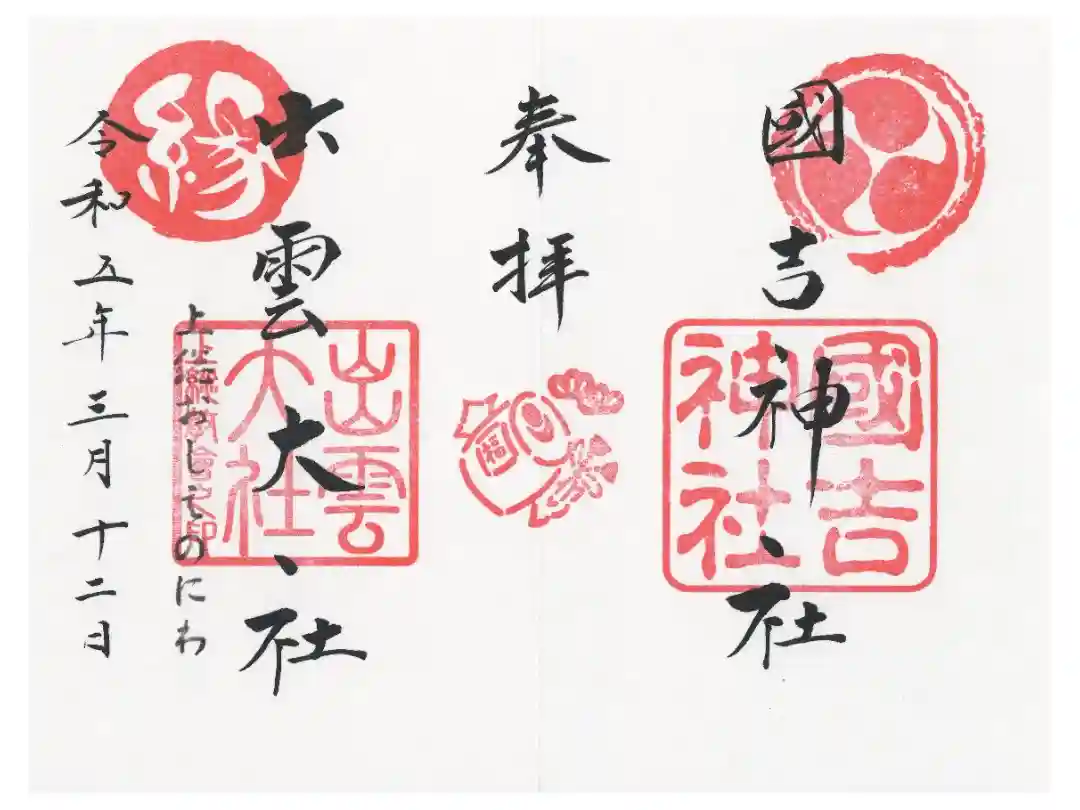 國吉神社
國吉
神社
奉拝
福
縁
出雲大社
出雲
大社
上総おしえのにわ
令和五年三月十二日